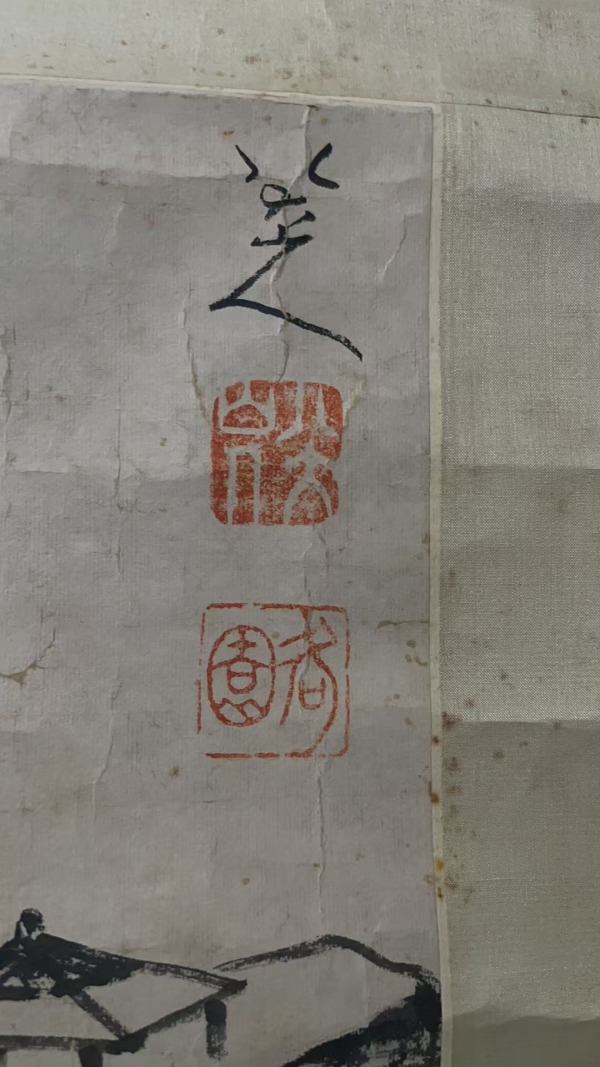 八大山人
八大山人
何園